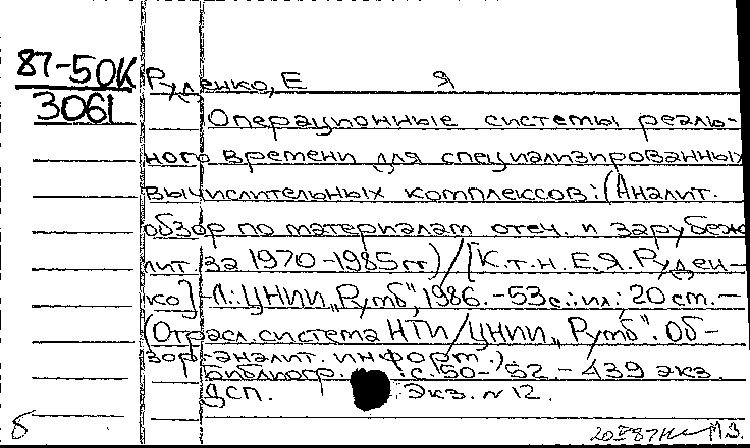 87-50К
3061
Руденко, Е Я
Операционные системы реаль-
ного времени для специализированных
вычислительных комплексов: (Аналит.
обзор по материалам отеч. и зарубеж
лит за 1970-1985гг) / [К.т.н. Е.Я. Руден-
ко] -Л.: ЦНИИ „Румб", 1986. -53 с.: ил; 20 см. —
(Отрасл. система НТИ / ЦНИИ „Румб". Об-
зор.-аналит. информ.)
Библиогр.: с. 50-52. - 439 экз.
ДСП. Экз. № 12.
б МЗ